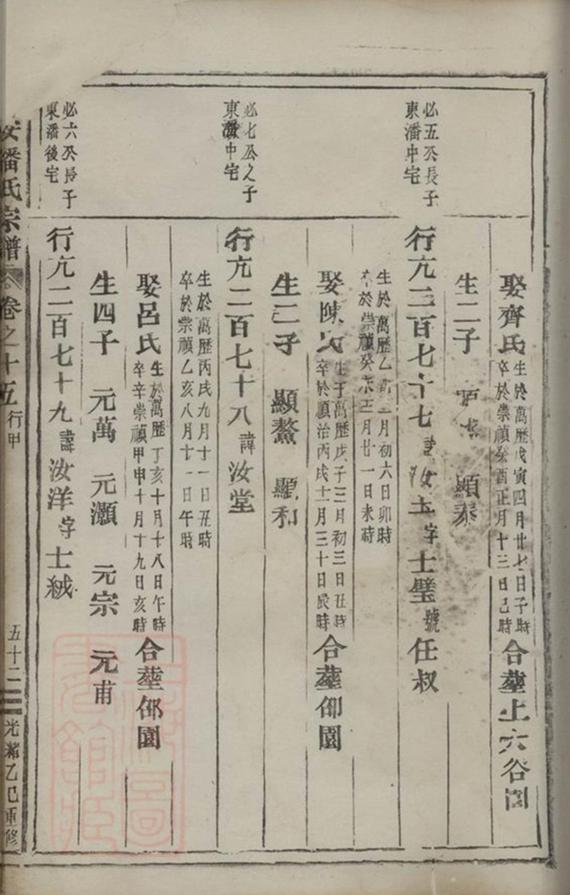 娶齊氏 生於萬歷戊寅四月廿七日子時
卒於崇禎癸酉正月十三日己時 合塟上六谷園
生二子 顯泰
必五公長子
東潘中宅
行亢二百七十七 諱汝玉 字士璧 號任叔
生於萬歷乙 月初六日卯時
卒於崇禎癸未三月廿一日未時
娶陳氏 生于萬歷戊子三月初三日丑時
卒於順治丙戌十二月三十日辰時 合塟仰園
生二子 顯鰲 顯和
必七公之子
東潘中宅
行亢二百七十八 諱汝堂
生於萬歷丙戌九月十一日丑時
卒於崇禎乙亥八月十一日午時
娶呂氏 生於萬歷丁亥十月十八日午時
卒辛崇禎甲申十月十九日亥時 合塟仰園
生四子 元萬 元灝 元宗 元甫
必六公長子
東潘後宅
行亢二百七十九 諱汝洋 字士絨
安潘氏宗譜 卷之十五 行甲 五十二 光緒乙巳重修